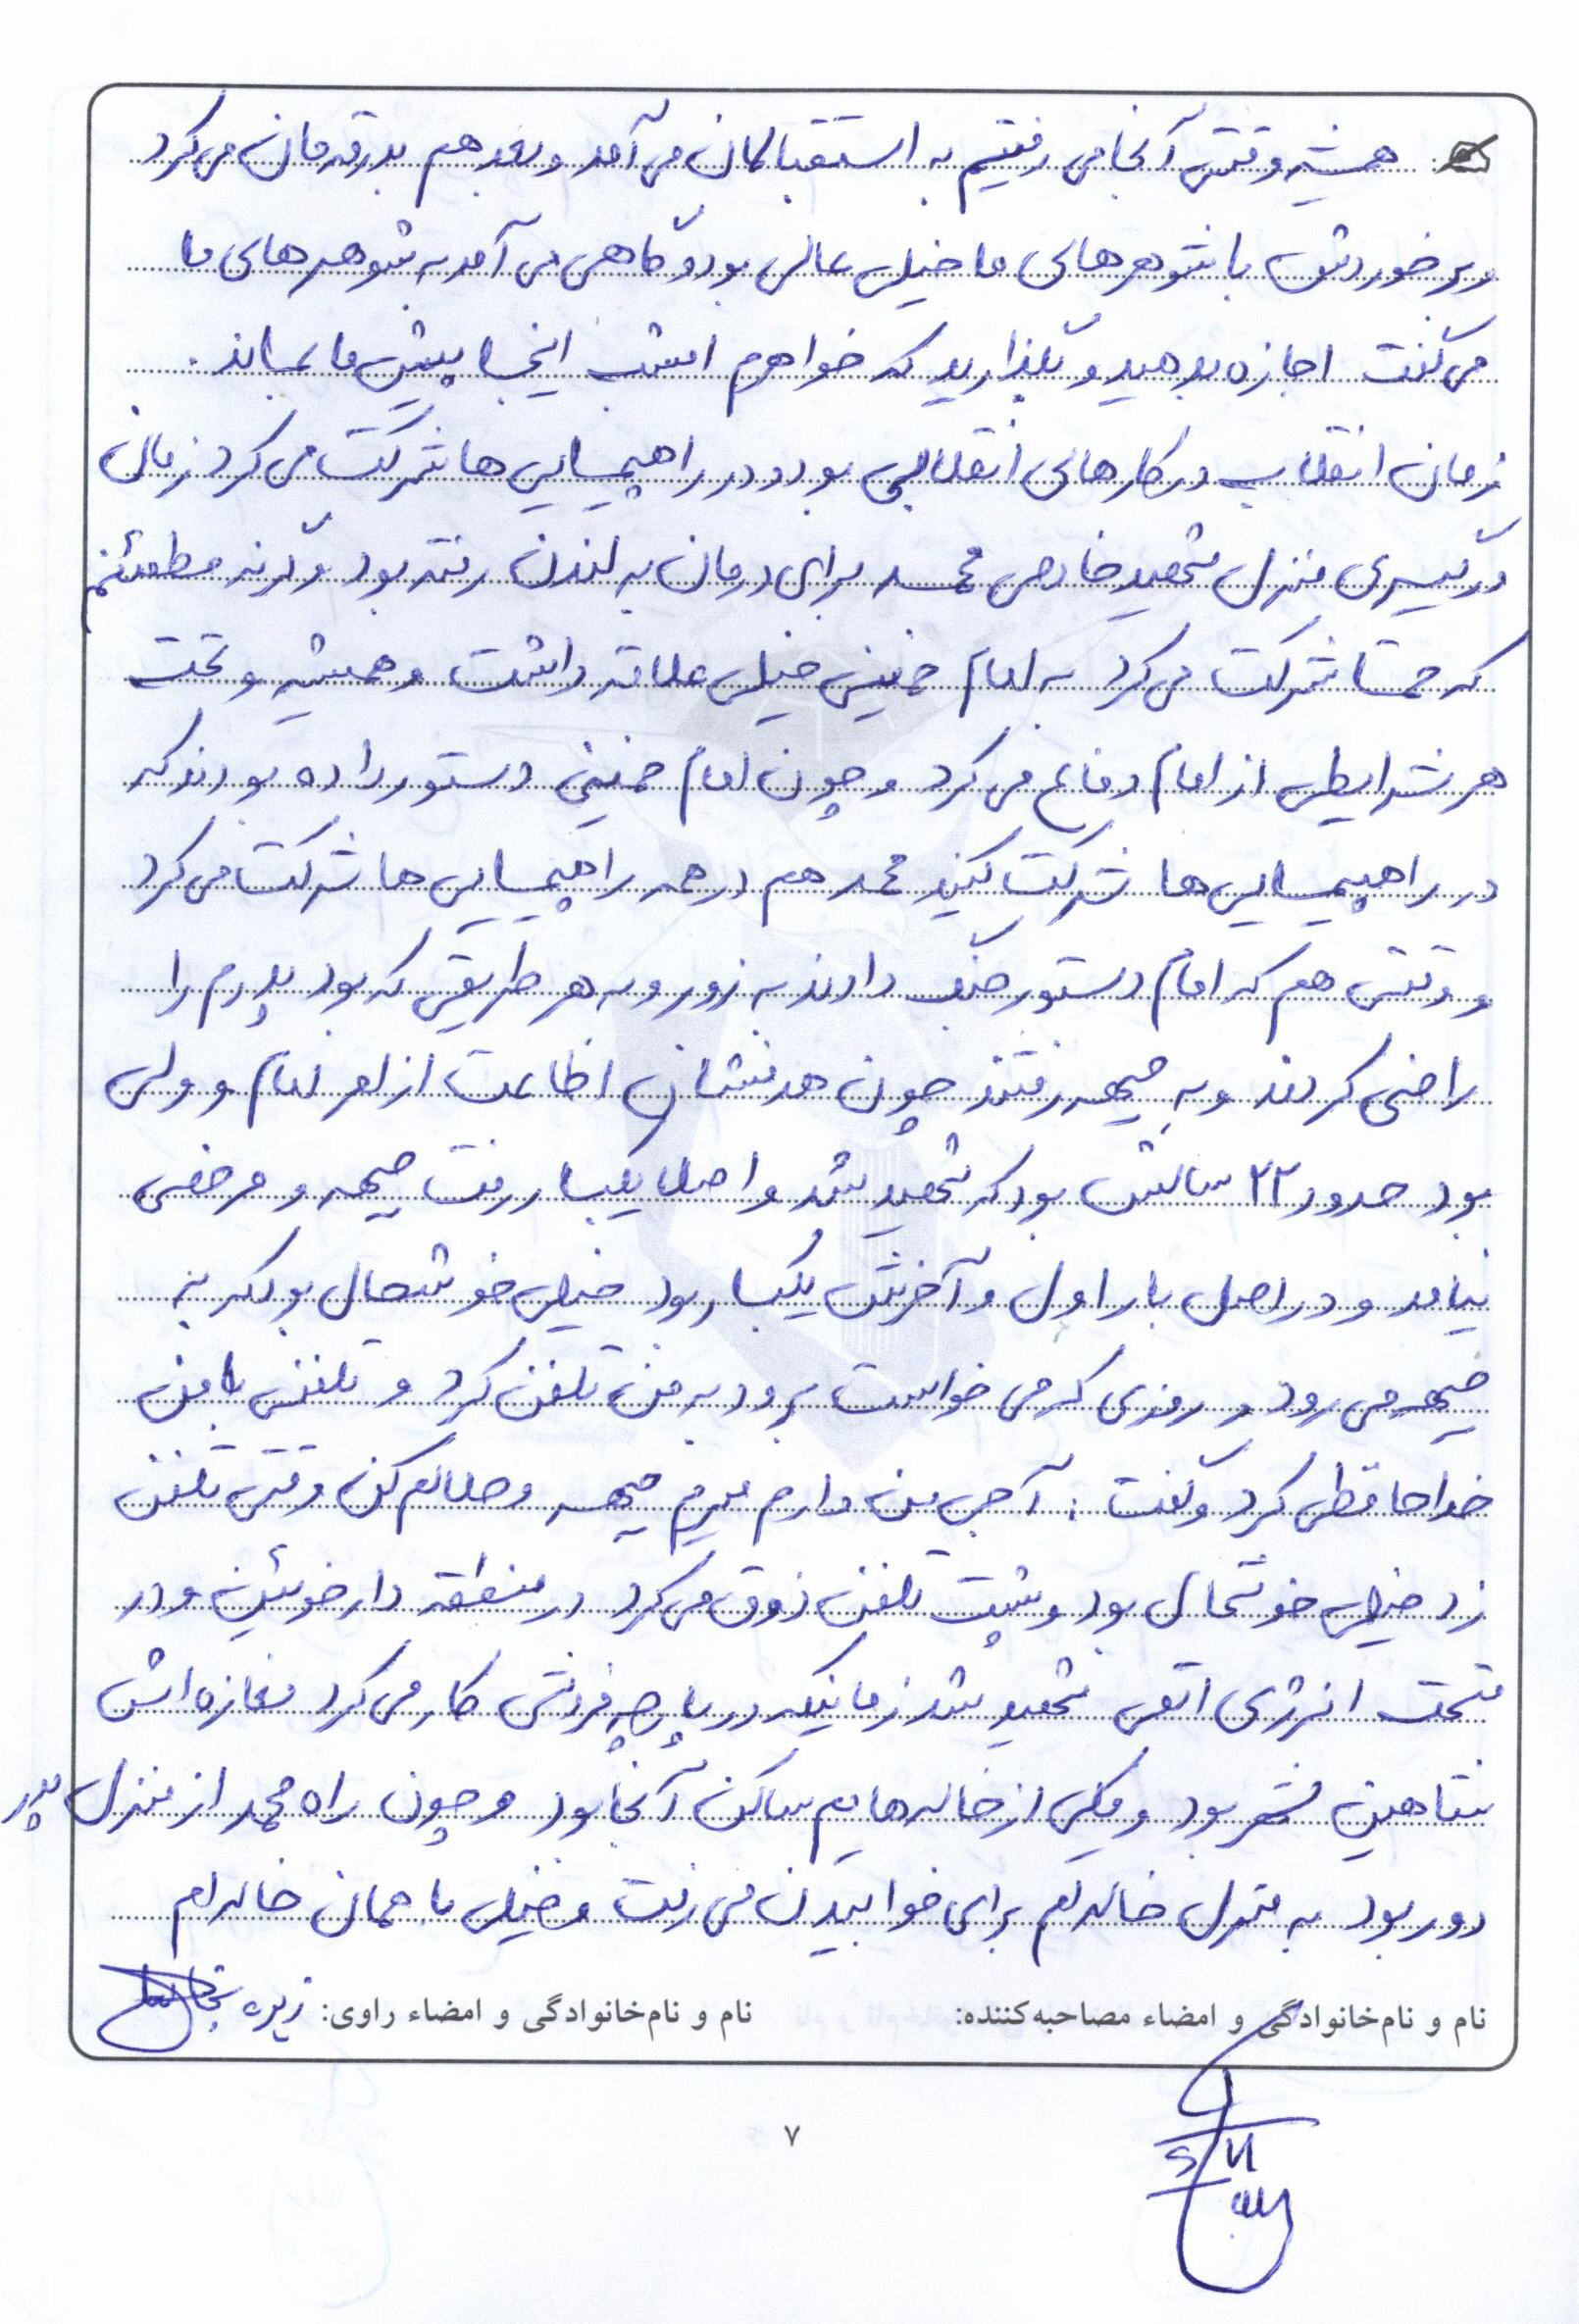 همیشه وقتی آنجا می رفتیم به استقبالمان می آمد و بعد هم بدرقه مان می کرد
و برخوردش با شوهرهای ما خیلی عالی بود و گاهی می آمد به شوهرهای ما
می گفت اجازه بدهید و بگذارید که خواهرم امشب اینجا پیش ما بماند.
زمان انقلاب در کارهای انقلابی بود و در راهپیمایی ها شرکت می کرد زمان
درگیری منزل شهید خادمی محمد برای درمان به لندن رفته بود وگرنه مطمئنم
که حتما شرکت می کرد به امام خمینی خیلی علاقه داشت و همیشه و تحت
هر شرایطی از امام دفاع می کرد و چون امام خمینی دستور داده بودند که
در راهپیمایی ها شرکت کنید محمد هم در همه راهپیمایی ها شرکت می کرد
و وقتی هم که امام دستور جنگ دادند به زور و به هر طریقی که بود پدرم را
راضی کردند و به جبهه رفتند چون هدفشان اطاعت از امر امام و ولی
بود حدود ۲۲ سالش بود که شهید شد و اصلا یکبار رفت جبهه و مرخصی
نیامد و در اصل بار اول و آخرش یکبار بود خیلی خوشحال بود که به
جبهه می رود و روزی که می خواست برود به من تلفن کرد و تلفنی با من
خداحافظی کرد و گفت : آجی من دارم میرم جبهه و حلالم کن وقتی تلفن
زد خیلی خوشحال بود و پشت تلفن ذوق می کرد در منطقه دارخوئین و در
تحت انرژی اتمی شهید شد زمانیکه در پارچه فروشی کار می کرد مغازه اش
شاهین شهر بود و یکی از خاله هایم ساکن آنجا بود و چون راه محمد از منزل پدر
دور بود به منزل خاله ام برای خوابیدن می رفت و خیلی با همان خاله ام
نام و نام‌خانوادگی و امضاء مصاحبه‌کننده: نام و نام‌خانوادگی و امضاء راوی:
۷